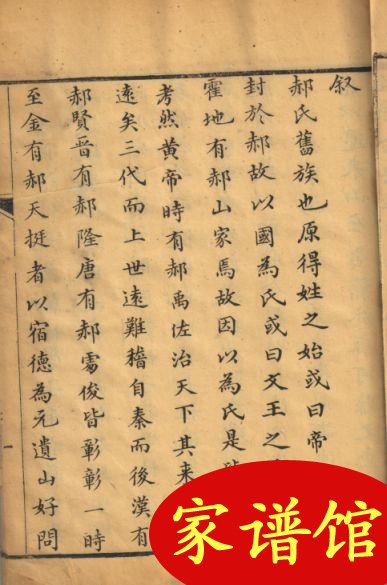 叙
郝氏舊族也原得姓之始或曰帝
封於郝故以國為氏或曰文王之
霍地有郝山家焉故因以為氏是
考然黄帝時有郝禹佐治天下其来
遠矣三代而上世遠難稽自秦而後漢有
郝賢晋有郝隆唐有郝處俊皆彰彰一時
至金有郝天挺者以宿德為元遺山好問
一
家谱馆